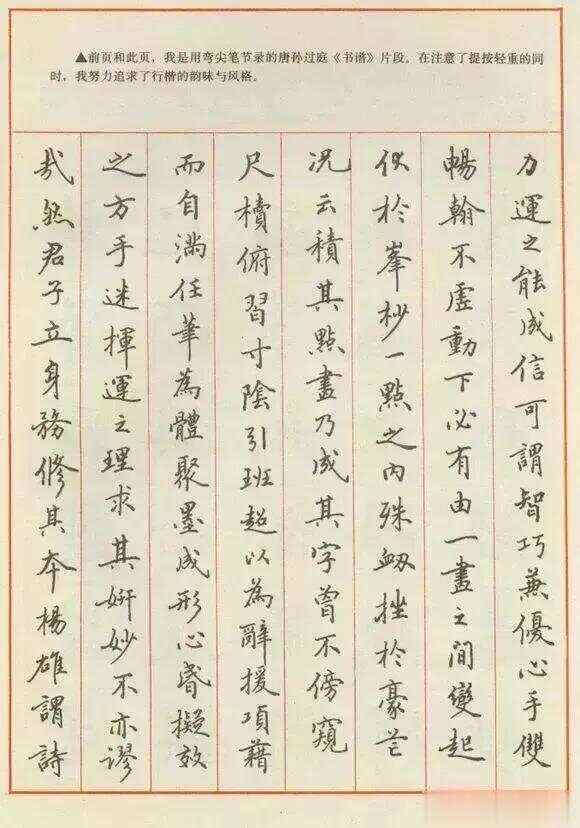 ▲前页和此页，我是用弯尖笔节录的唐孙过庭《书谱》片段。在注意了提按轻重的同
时，我努力追求了行楷的韵味与风格。
力運之能成信可謂智巧兼優心手雙
暢翰不虛動下必有由一畫之間變起
伏於峯杪一點之内殊衂挫於豪芒
况云積其點畫乃成其字曾不傍窺
尺櫝俯習寸陰引班超以為辭援項藉
而自满任筆為體聚墨成形心昏擬效
之方手迷揮運之理求其妍妙不亦謬
哉然君子立身務修其本楊雄謂詩